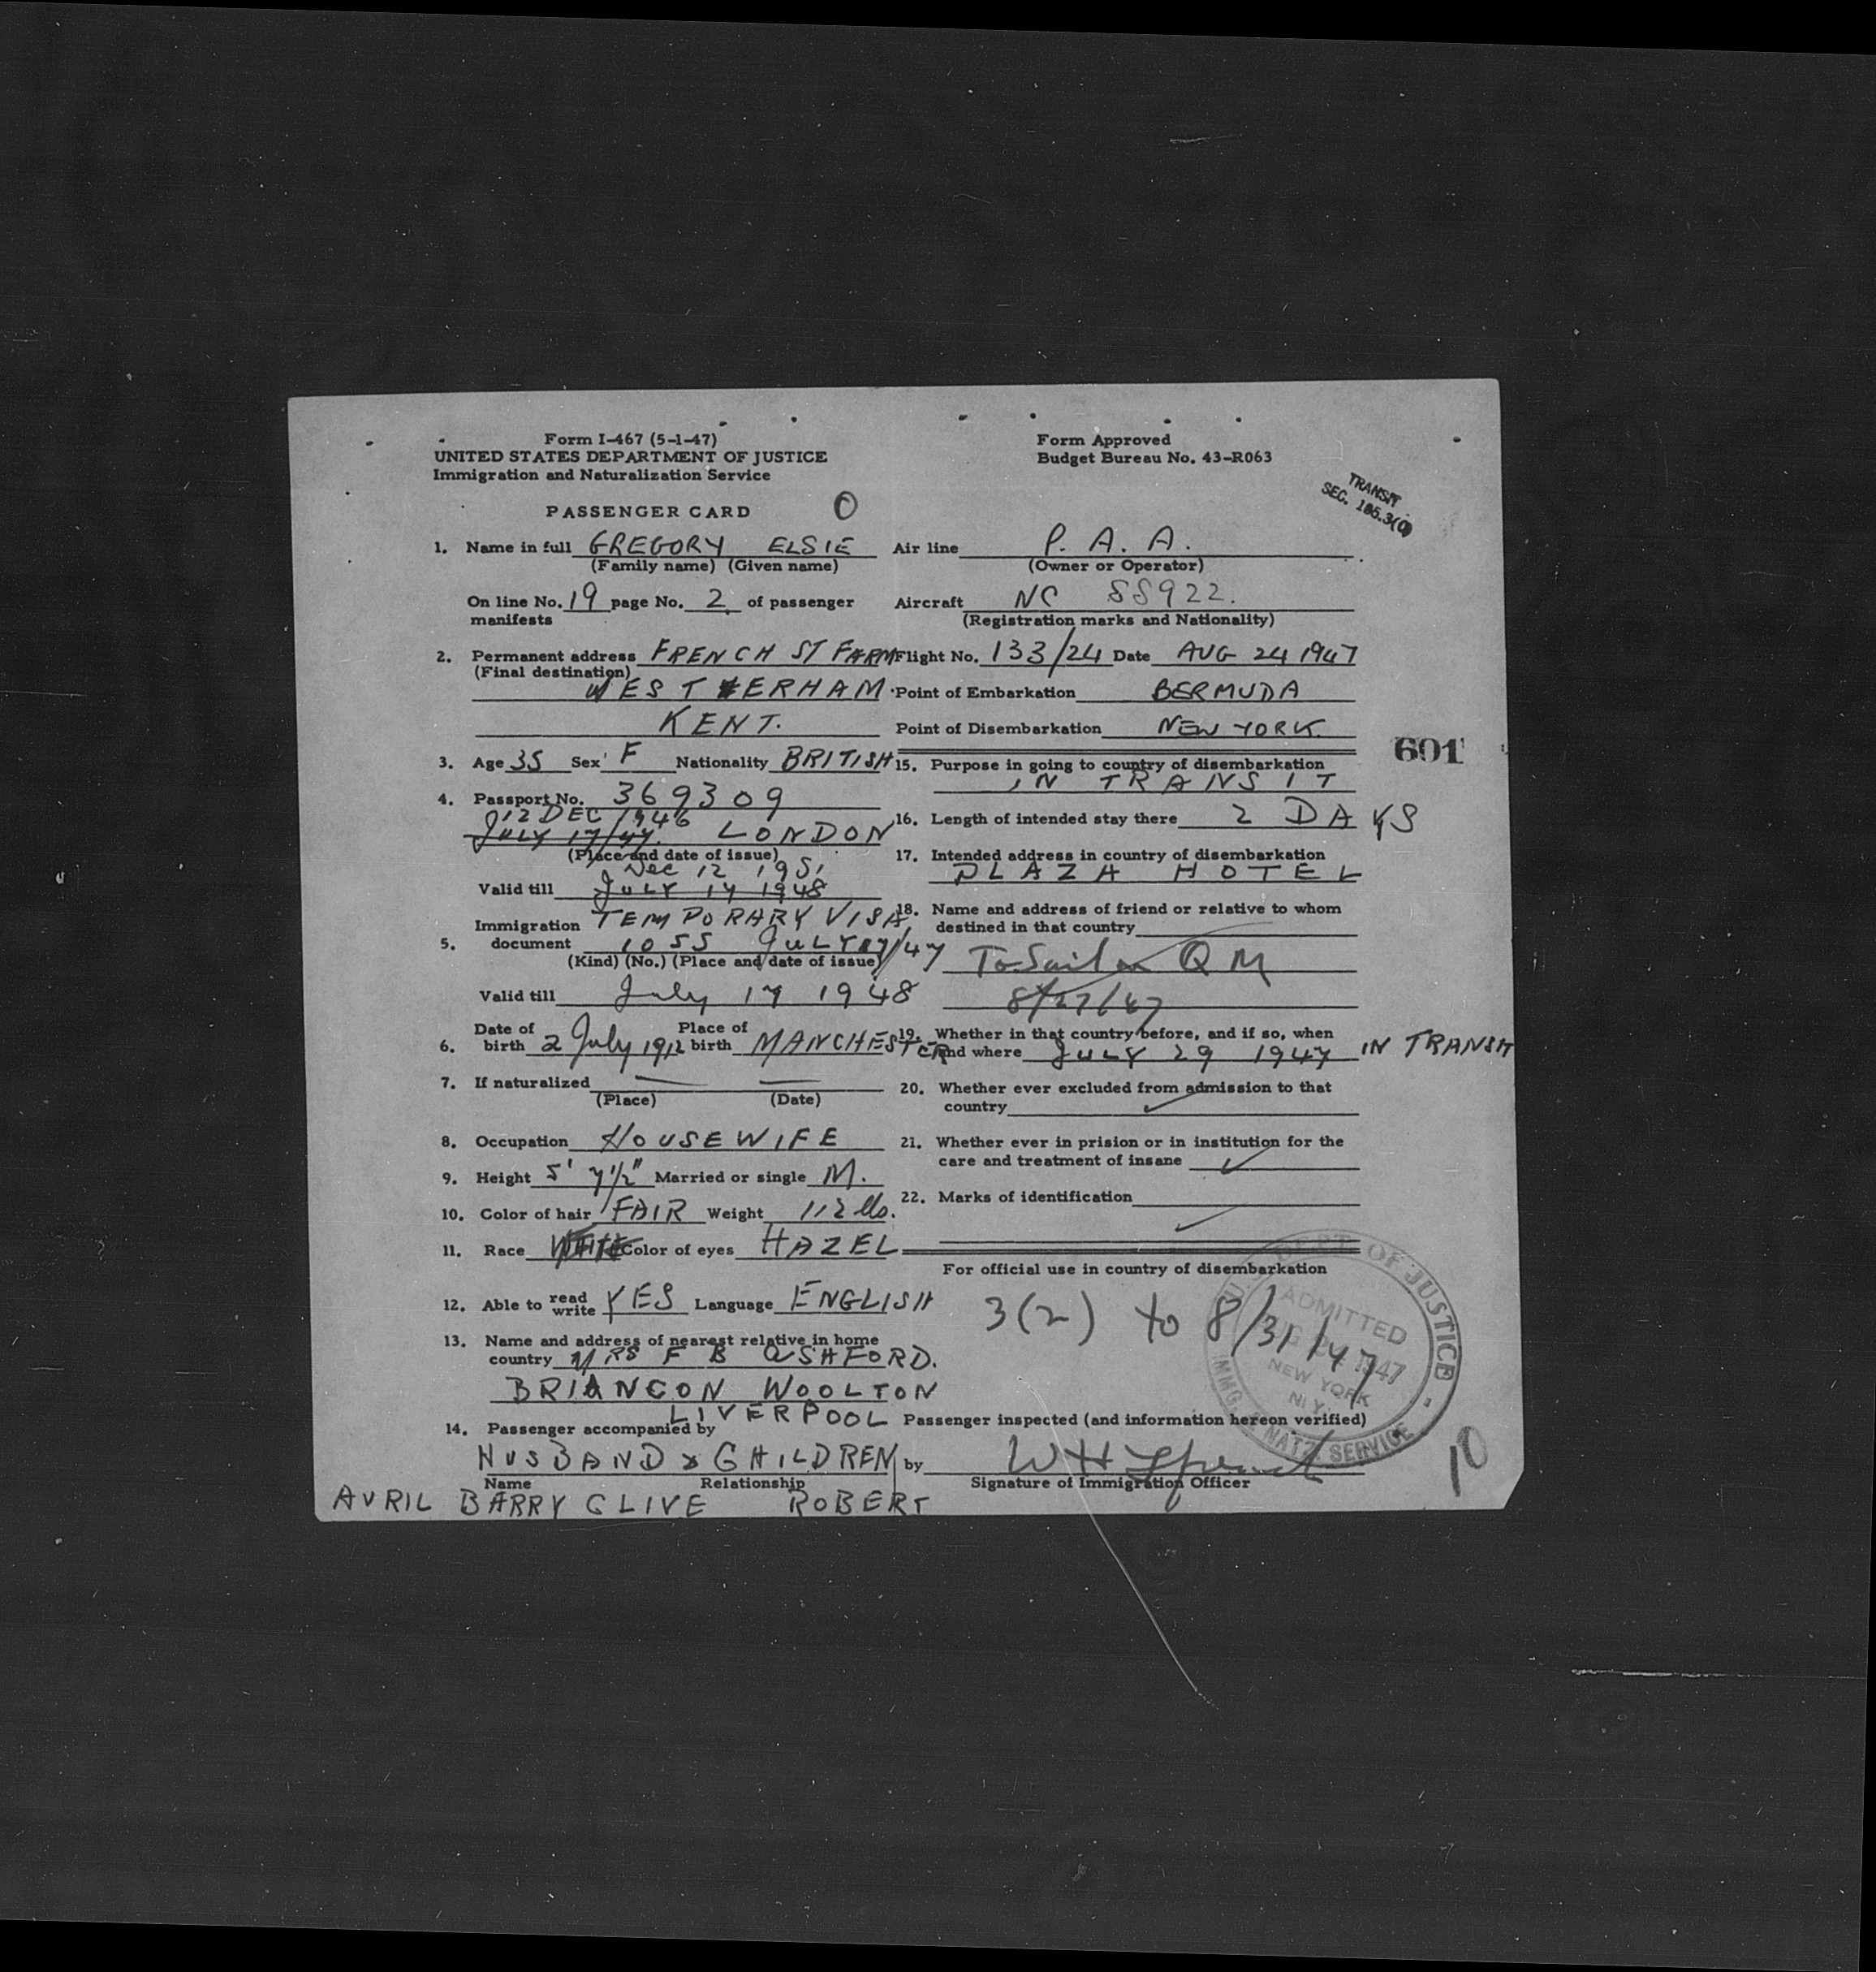 Form I-467 (5-1-47)
UNITED STATES DEPARTMENT OF JUSTICE
Immigration and Naturalization Service
Form Approved
Budget Bureau No. 43-R063
TRANSIT
SEC. 105.3(
PASSENGER CARD O
1. Name in full GREGORY ELSIE
(Family name) (Given name)
On line No. 19 page No. 2 of passenger
manifests
2. Permanent address FRENCH ST FARM
(Final destination)
WESTERHAM
KENT.
3. Age 35 Sex F Nationality BRITISH
4. Passport No. 369309
12 DEC 1946
JULY 17/47. LONDON
(Place and date of issue)
Dec 12 1951
Valid till JULY 17 1948
Immigration TEMPORARY VISA
5. document 1055 JULY 17/47
(Kind) (No.) (Place and date of issue)
Valid till July 17 1948
6. Date of birth 2 July 1912 Place of birth MANCHESTER
7. If naturalized — —
(Place) (Date)
8. Occupation HOUSEWIFE
9. Height 5' 7½" Married or single M.
10. Color of hair FAIR Weight 112 lbs.
11. Race WHITE Color of eyes HAZEL
12. Able to read write YES Language ENGLISH
13. Name and address of nearest relative in home
country MRS F B ASHFORD.
BRIANCON WOOLTON
LIVERPOOL
14. Passenger accompanied by
HUSBAND & CHILDREN
Name Relationship
AVRIL BARRY CLIVE ROBERT
Air line P. A. A.
(Owner or Operator)
Aircraft NC 88922.
(Registration marks and Nationality)
Flight No. 133/24 Date AUG 24 1947
Point of Embarkation BERMUDA
Point of Disembarkation NEW YORK
601
15. Purpose in going to country of disembarkation
IN TRANSIT
16. Length of intended stay there 2 DAYS
17. Intended address in country of disembarkation
PLAZA HOTEL
18. Name and address of friend or relative to whom
destined in that country
To Sail on Q M
8/27/47
19. Whether in that country before, and if so, when
and where JULY 29 1947 IN TRANSIT
20. Whether ever excluded from admission to that
country
21. Whether ever in prision or in institution for the
care and treatment of insane
22. Marks of identification
For official use in country of disembarkation
3(2) to 8/31/47
DEPT. OF JUSTICE
ADMITTED
1947
NEW YORK
N.Y.
IMMG. & NATZ. SERVICE
Passenger inspected (and information hereon verified)
by W H
Signature of Immigration Officer
10